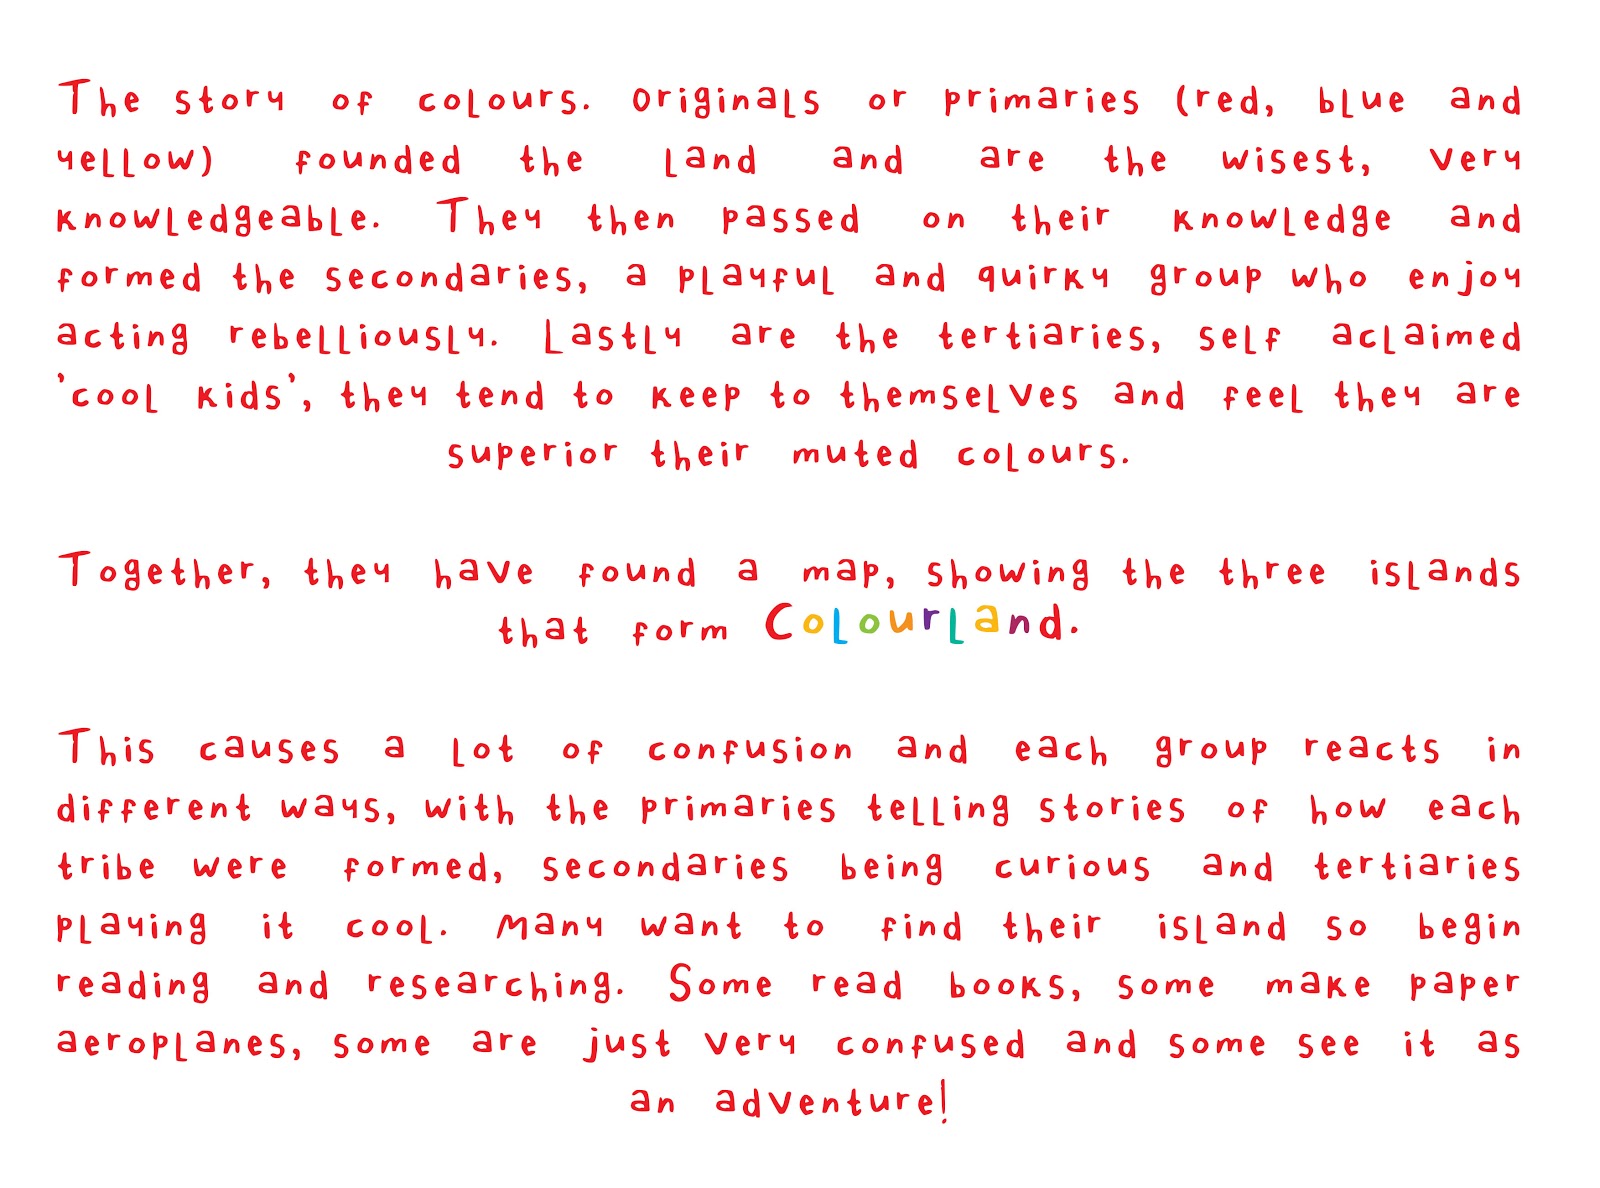 The story of colours. Originals or primaries (red, blue and
yellow) founded the land and are the wisest, very
knowledgeable. They then passed on their knowledge and
formed the secondaries, a playful and quirky group who enjoy
acting rebelliously. Lastly are the tertiaries, self aclaimed
'cool kids', they tend to keep to themselves and feel they are
superior their muted colours.
Together, they have found a map, showing the three islands
that form Colourland.
This causes a lot of confusion and each group reacts in
different ways, with the primaries telling stories of how each
tribe were formed, secondaries being curious and tertiaries
playing it cool. Many want to find their island so begin
reading and researching. Some read books, some make paper
aeroplanes, some are just very confused and some see it as
an adventure!